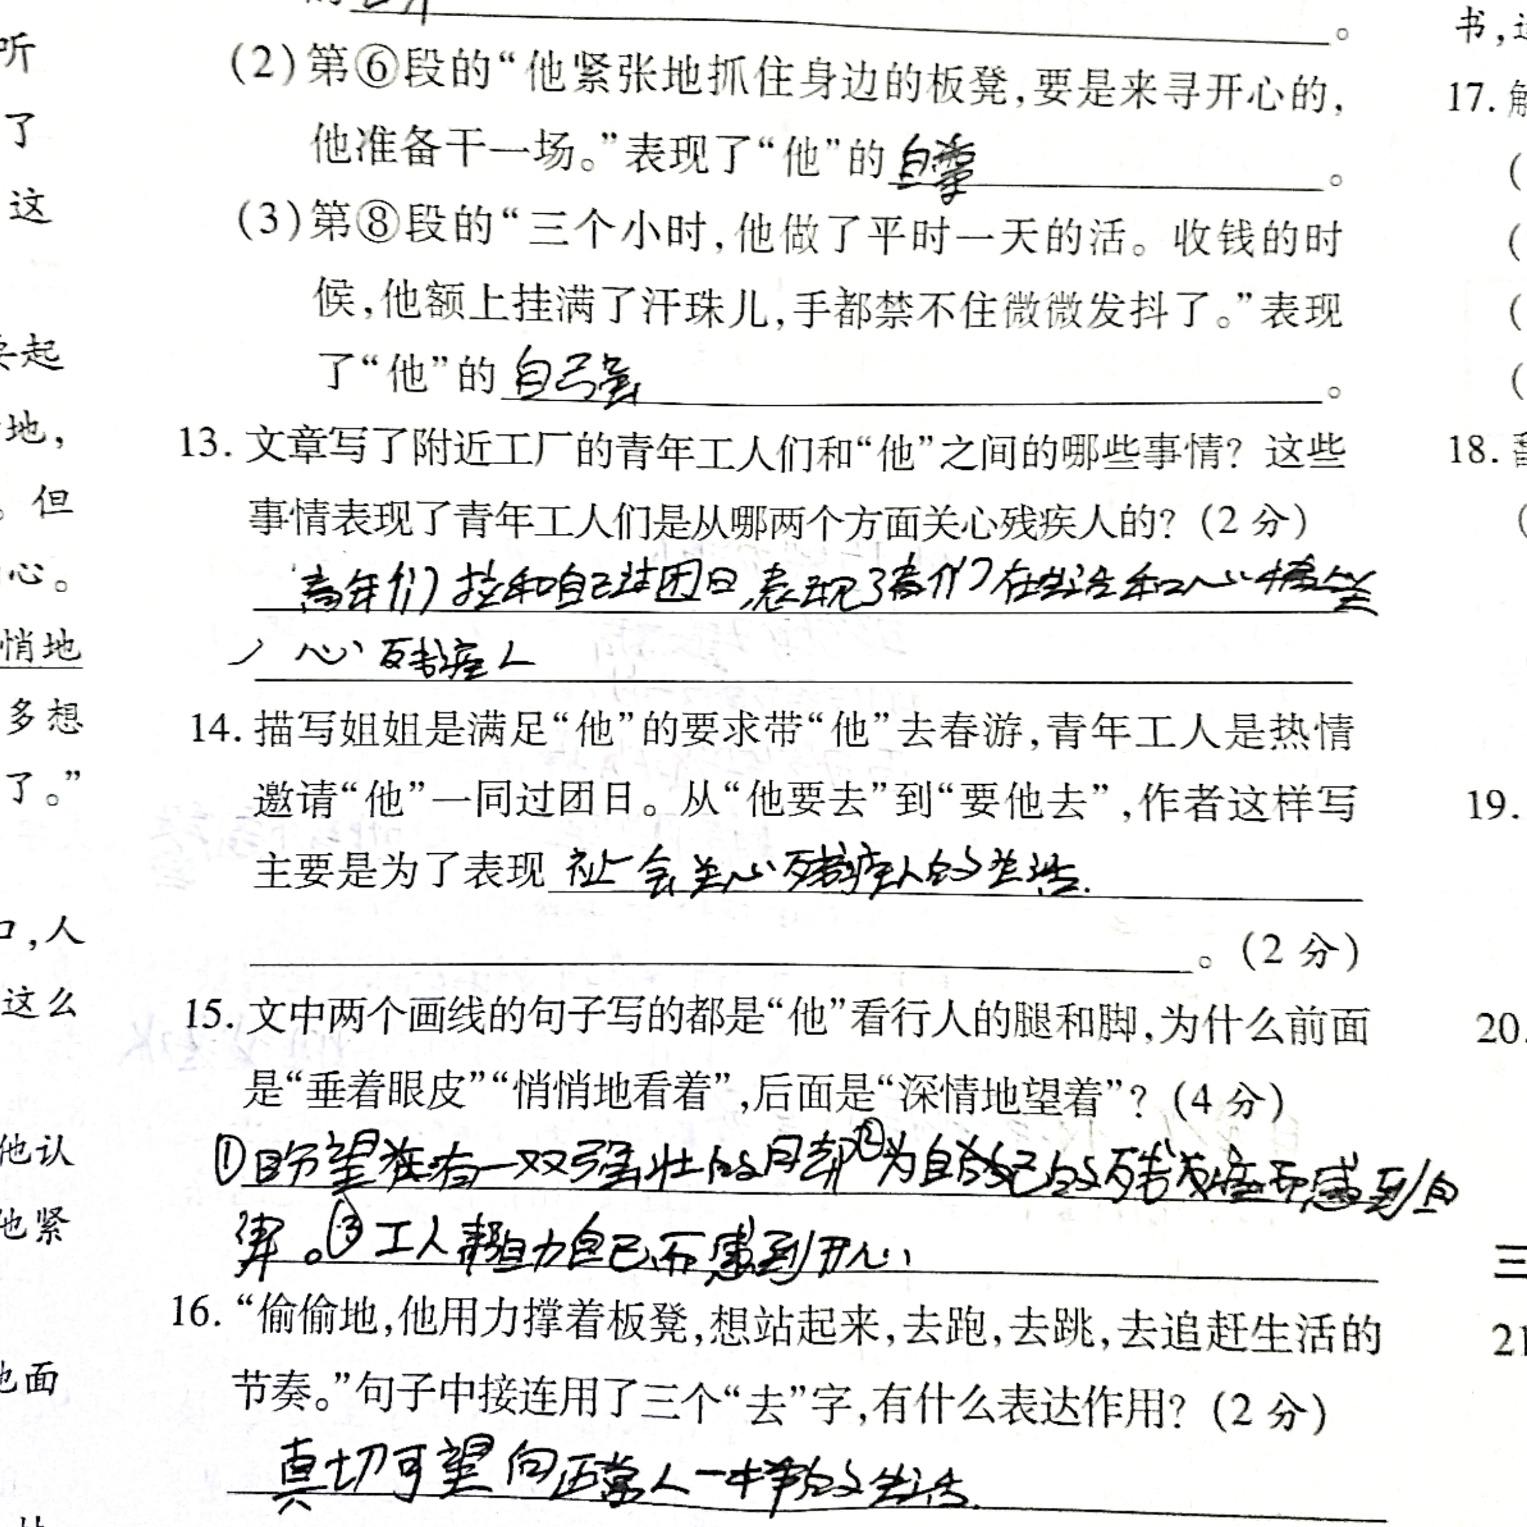 (2)第⑥段的“他紧张地抓住身边的板凳,要是来寻开心的,
他准备干一场。”表现了“他”的自
(3)第⑧段的“三个小时,他做了平时一天的活。收钱的时
候,他额上挂满了汗珠儿,手都禁不住微微发抖了。”表现
了“他”的自强。
13. 文章写了附近工厂的青年工人们和“他”之间的哪些事情? 这些
事情表现了青年工人们是从哪两个方面关心残疾人的? (2 分)
青年们 和自己过团日,表现了青们在生活和心情上
心残疾人
14. 描写姐姐是满足“他”的要求带“他”去春游,青年工人是热情
邀请“他”一同过团日。从“他要去”到“要他去”,作者这样写
主要是为了表现社会关心残疾人的生活.
。(2 分)
15. 文中两个画线的句子写的都是“他”看行人的腿和脚,为什么前面
是“垂着眼皮”“悄悄地看着”,后面是“深情地望着”? (4 分)
①盼望 有一双强壮的 ②为自 己的残疾而感到自
卑。③工人帮助自己而感到开心
16. “偷偷地,他用力撑着板凳,想站起来,去跑,去跳,去追赶生活的
节奏。”句子中接连用了三个“去”字,有什么表达作用? (2 分)
真切 望向正常人一样的生活.
听
了
这
起
地,
。但
心。
悄地
多想
了。”
,人
这么
他认
他紧
面
书,
17.
(
(
(
(
18.
(
19.
20.
三
21